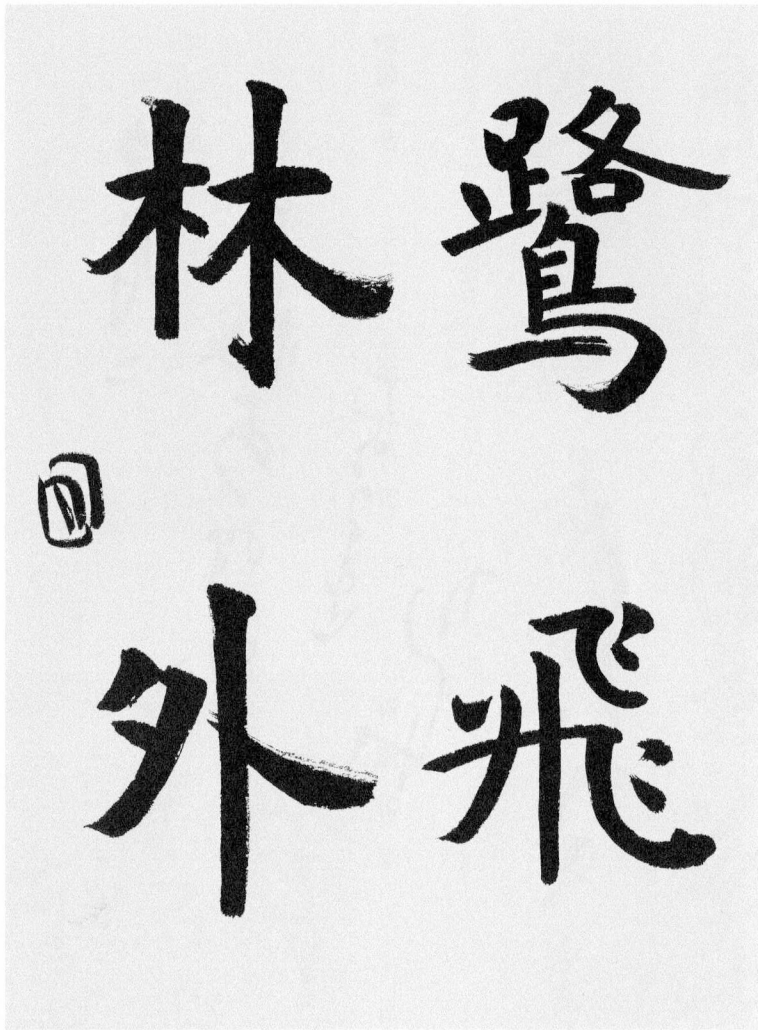 鷺飛
林外